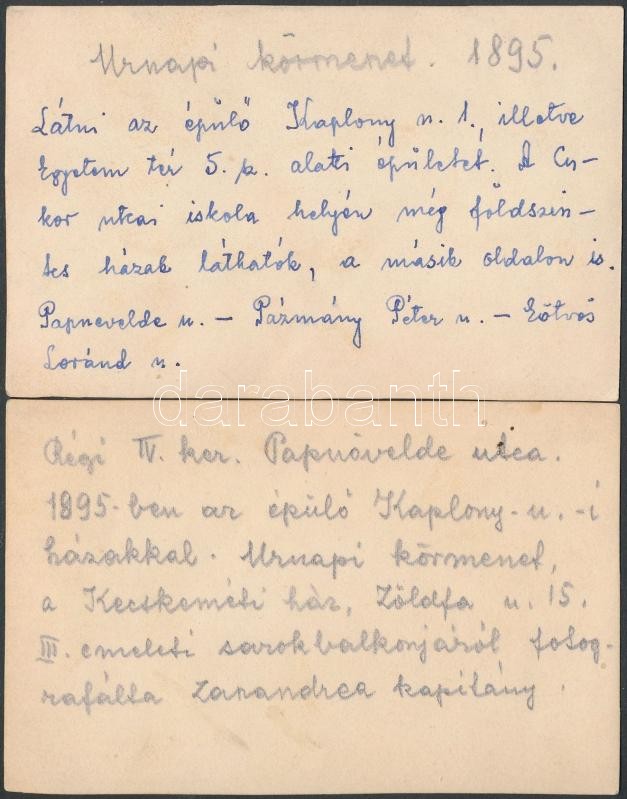 Urnapi körmenet. 1895.
Látni az épülő Kaplony u. 1., illetve
Egyetem tér 5. sz. alatti épületet. A Cu-
kor utcai iskola helyén még földszin-
tes házak láthatók, a másik oldalon is.
Papnevelde u. – Pázmány Péter u. – Eötvös
Loránd u.
darabanth
Régi IV. ker. Papnövelde utca.
1895-ben az épülő Kaplony-u.-i
házakkal. Urnapi körmenet,
a Kecskeméti ház, Zöldfa u. 15.
III. emeleti sarokbalkonjáról fotog-
rafálta Zanandrea kapitány.